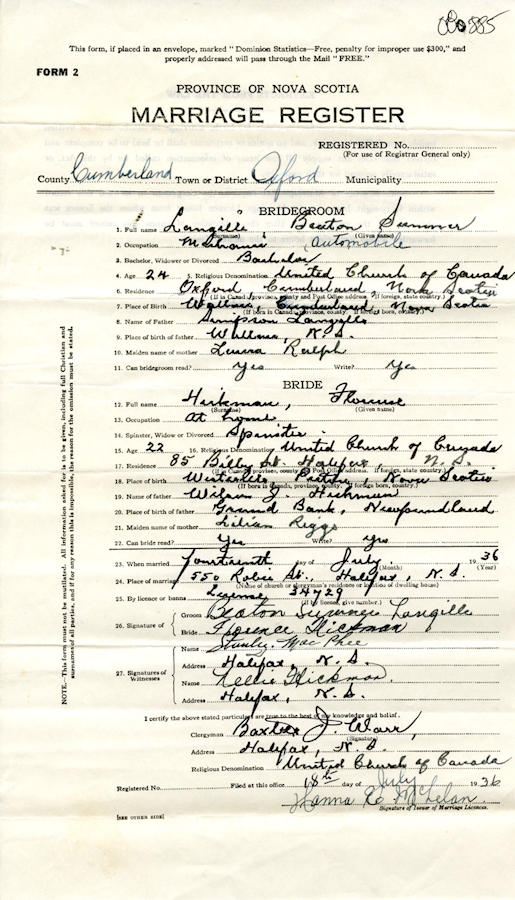 885
This form, if placed in an envelope, marked "Dominion Statistics—Free, penalty for improper use $300," and
properly addressed will pass through the Mail "FREE."
FORM 2
PROVINCE OF NOVA SCOTIA
MARRIAGE REGISTER
REGISTERED No.
(For use of Registrar General only)
County Cumberland Town or District Oxford Municipality
BRIDEGROOM
1. Full name Langille Beaton Sumner
(Surname) (Given name)
2. Occupation Mechanic automobile
3. Bachelor, Widower or Divorced Bachelor
4. Age 24 5. Religious Denomination United Church of Canada
6. Residence Oxford Cumberland, Nova Scotia
(If in Canada, province, county and Post Office address. If foreign, state country.)
7. Place of Birth Cumberland Nova Scotia
(If born in Canada, province, county; if foreign born, country)
8. Name of Father Simpson Langille
9. Place of birth of father N.S.
10. Maiden name of mother Ralph
11. Can bridegroom read? Yes Write? Yes
BRIDE
12. Full name Hickman, Florence
(Surname) (Given name)
13. Occupation At home
14. Spinster, Widow or Divorced Spinster
15. Age 22 16. Religious Denomination United Church of Canada
17. Residence 85 St. Halifax, N.S.
(If in Canada, province, county and Post Office address. If foreign, state country.)
18. Place of Birth Nova Scotia
(If born in Canada, province, county; if foreign born, country)
19. Name of Father J. Hickman
20. Place of birth of father Grand Bank, Newfoundland
21. Maiden name of mother Lilian Riggs
22. Can bride read? Yes Write? Yes
23. When married Fourteenth day of July 1936
(Month) (Year)
24. Place of marriage 550 Robie St. Halifax, N.S.
(Name of church or clergyman's residence or location of dwelling house)
25. By licence or banns License 34729
(If by licence, give number.)
26. Signature of Groom Beaton Sumner Langille
Bride Florence Hickman
27. Signatures of Witnesses
Name Stanley MacPhee
Address Halifax, N.S.
Name Nellie Hickman
Address Halifax, N.S.
I certify the above stated particulars are true to the best of my knowledge and belief.
Clergyman Baxter J. Warr,
(Signature)
Address Halifax, N.S.
Religious Denomination United Church of Canada
Registered No. Filed at this office 18th day of July 1936
Signature of Issuer of Marriage Licences.
[SEE OTHER SIDE]
NOTE.—This form must not be mutilated. All information asked for is to be given, including full Christian and
surnames of all parties, and if for any reason this is impossible, the reason for the omission must be stated.